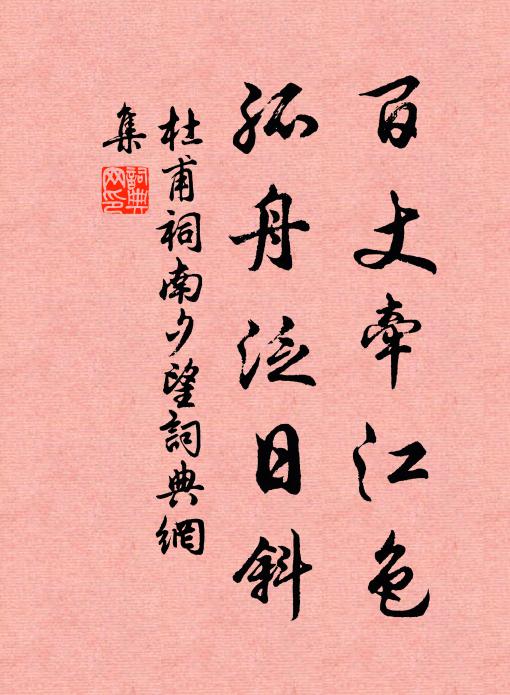 百丈牽江色
孤舟泛日斜
杜甫祠南夕望詞典網
集
詞典网印